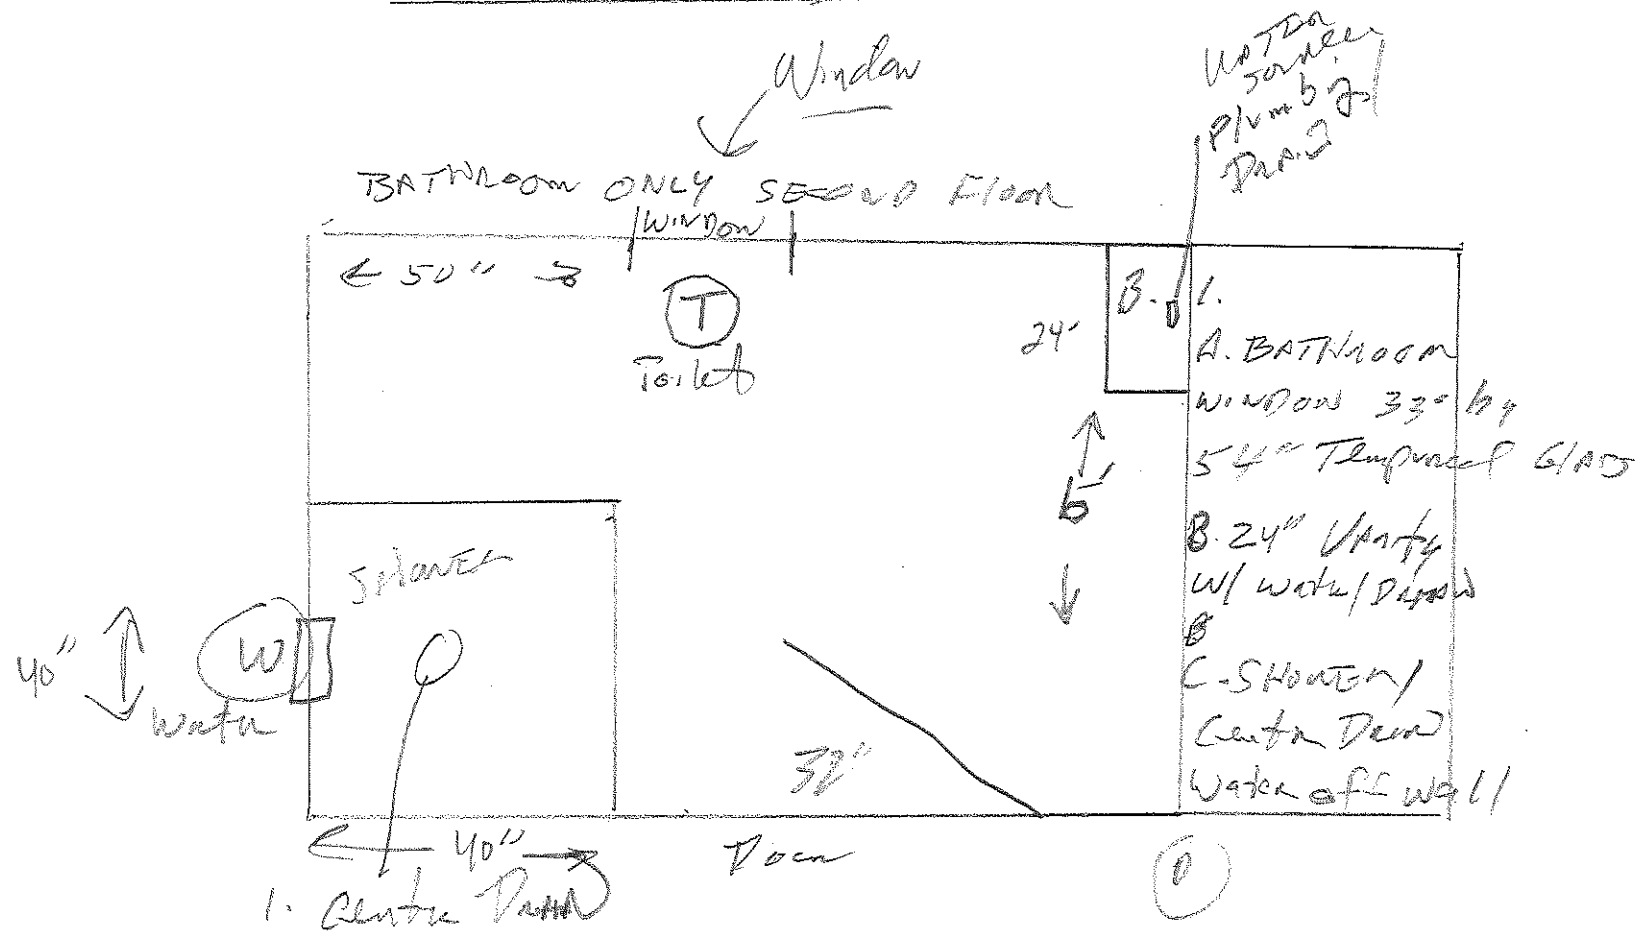 Window
WATER
SOURCE
Plumbing/
DRAIN
BATHROOM ONLY SECOND FLOOR
WINDOW
← 50" →
T
Toilet
B.
1.
24"
A. BATHROOM
WINDOW 33" by
54" Tempured Glass
B. 24" Vanity
W/ Water/Drain
B
C. SHOWER/
Center Drain
Water off wall
SHOWER
40"
W
Water
32"
40"
Door
D
1. Center Drain